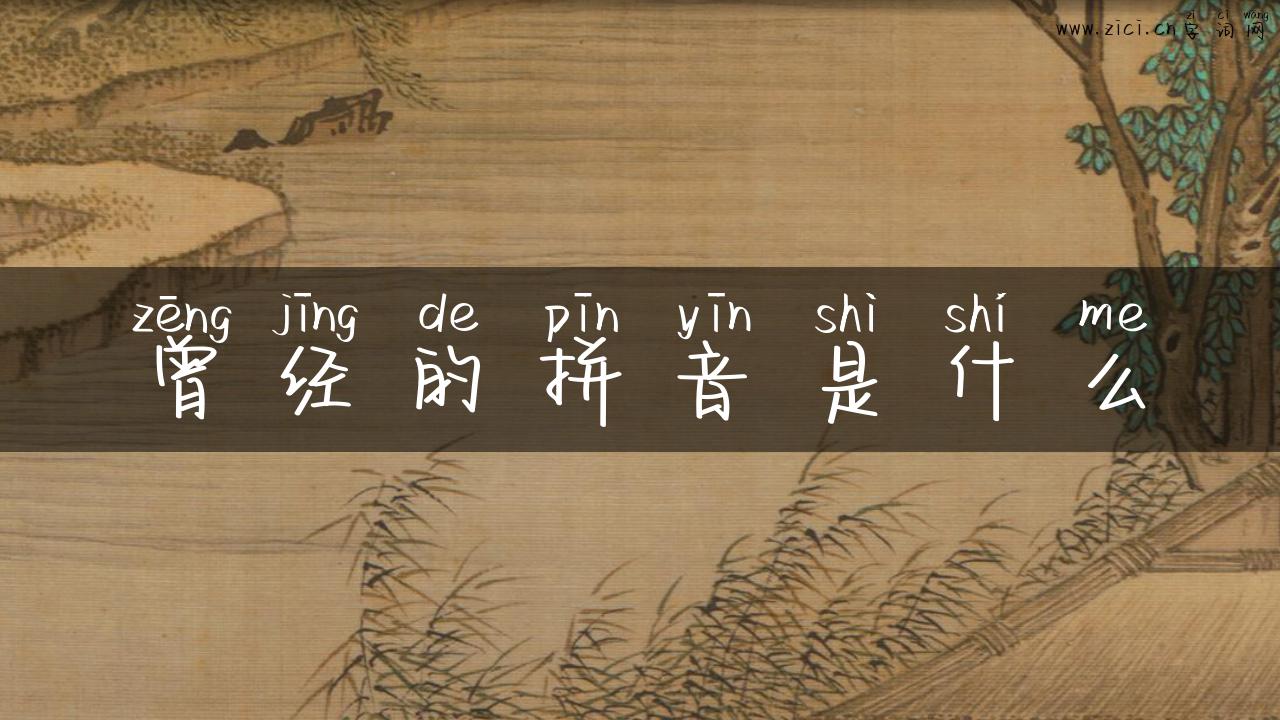 zì cí wǎng
www.zici.cn字词网
zēng jīng de pīn yīn shì shí me
曾经的拼音是什么